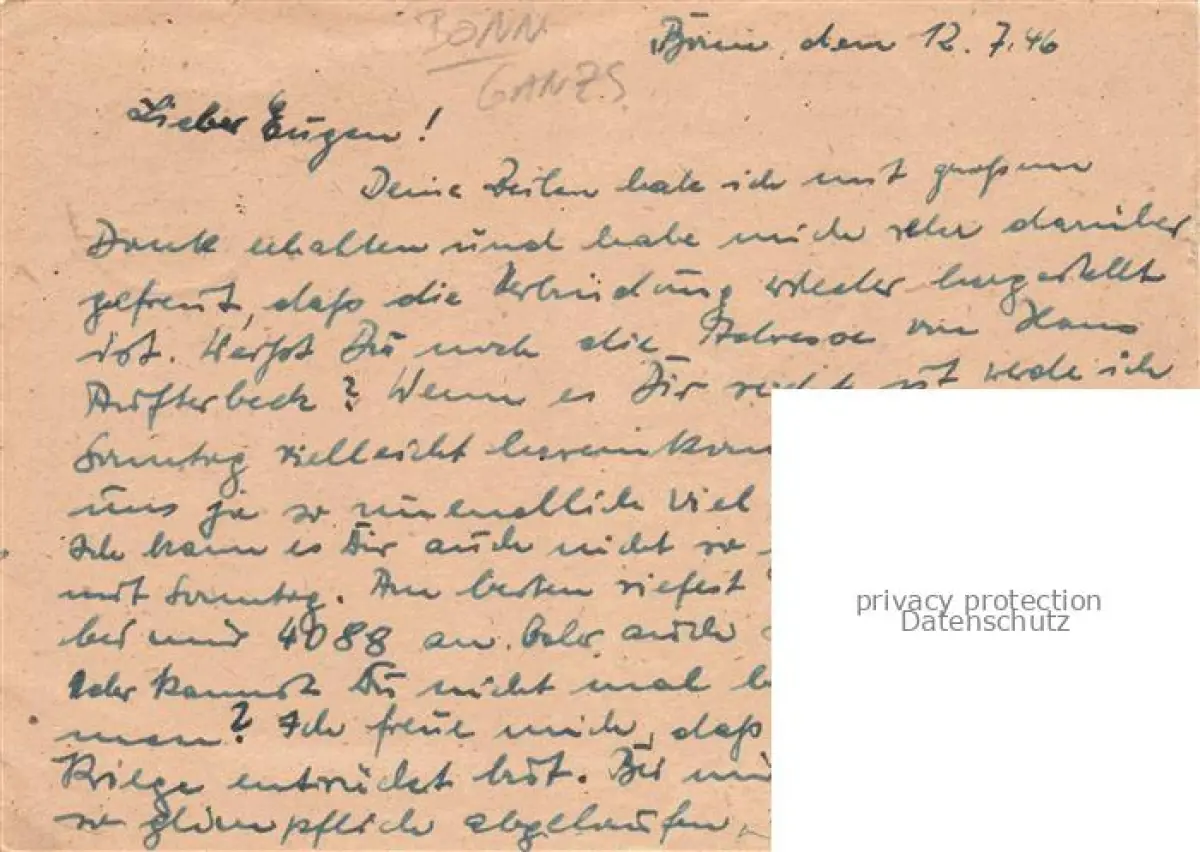 BONN
GANZS.
Bonn, den 12.7.46
Lieber Eugen!
Deine Zeilen habe ich mit großem
Dank erhalten und habe mich sehr darüber
gefreut, daß die Verbindung wieder hergestellt
ist. Weißt Du noch die Adresse von Hans
Aufterbeck? Wenn es Dir recht ist werde ich
Sonntag vielleicht hereinkom
uns ja so unendlich viel
Ich kann es Dir auch nicht so
mit Sonntag. Am besten riefest
bei mir 4088 an. Oder auch
Oder kannst Du nicht mal
men? Ich freue mich, daß
Kriege entrückt bist. Bei mir
so glimpflich abgelaufen,
privacy protection
Datenschutz